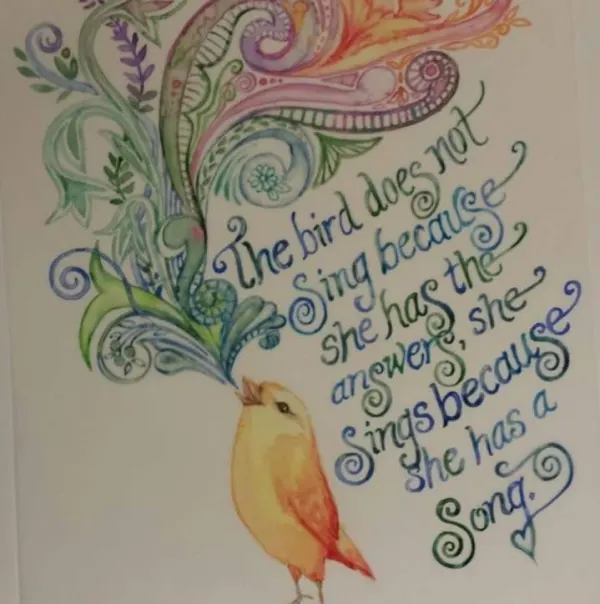 The bird does not
Sing because
she has the
answers, she
Sings because
she has a
Song.